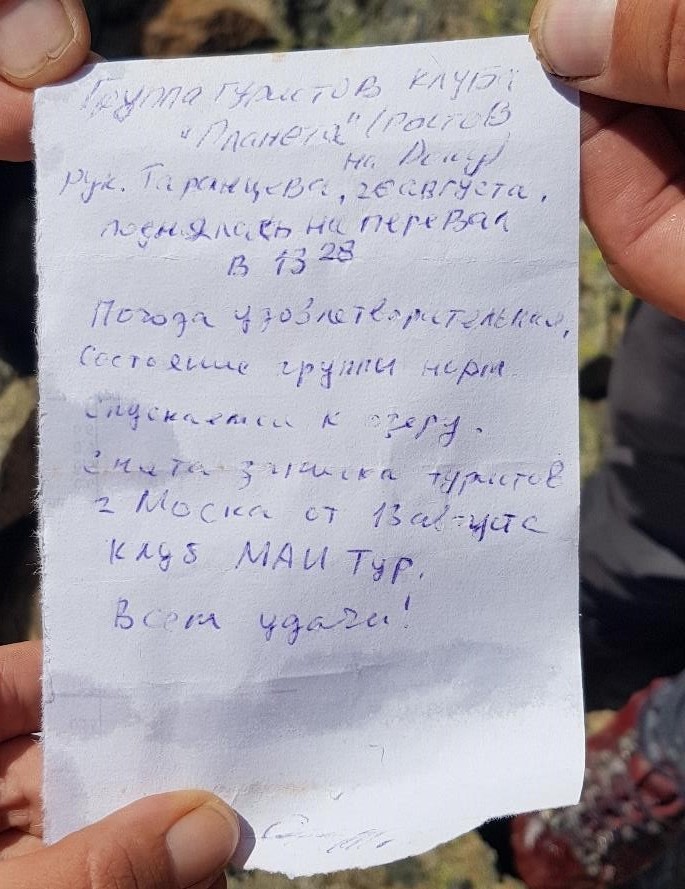 Группа туристов клуба
"Планета" (Ростов
на Дону)
рук. Таранцева, 26 августа,
поднялась на перевал
в 13 28
Погода удовлетворительная,
Состояние группы норм
Спускаемся к озеру.
Снята записка туристов
г Моска от 13 августа
клуб МАИ Тур.
Всем удачи!